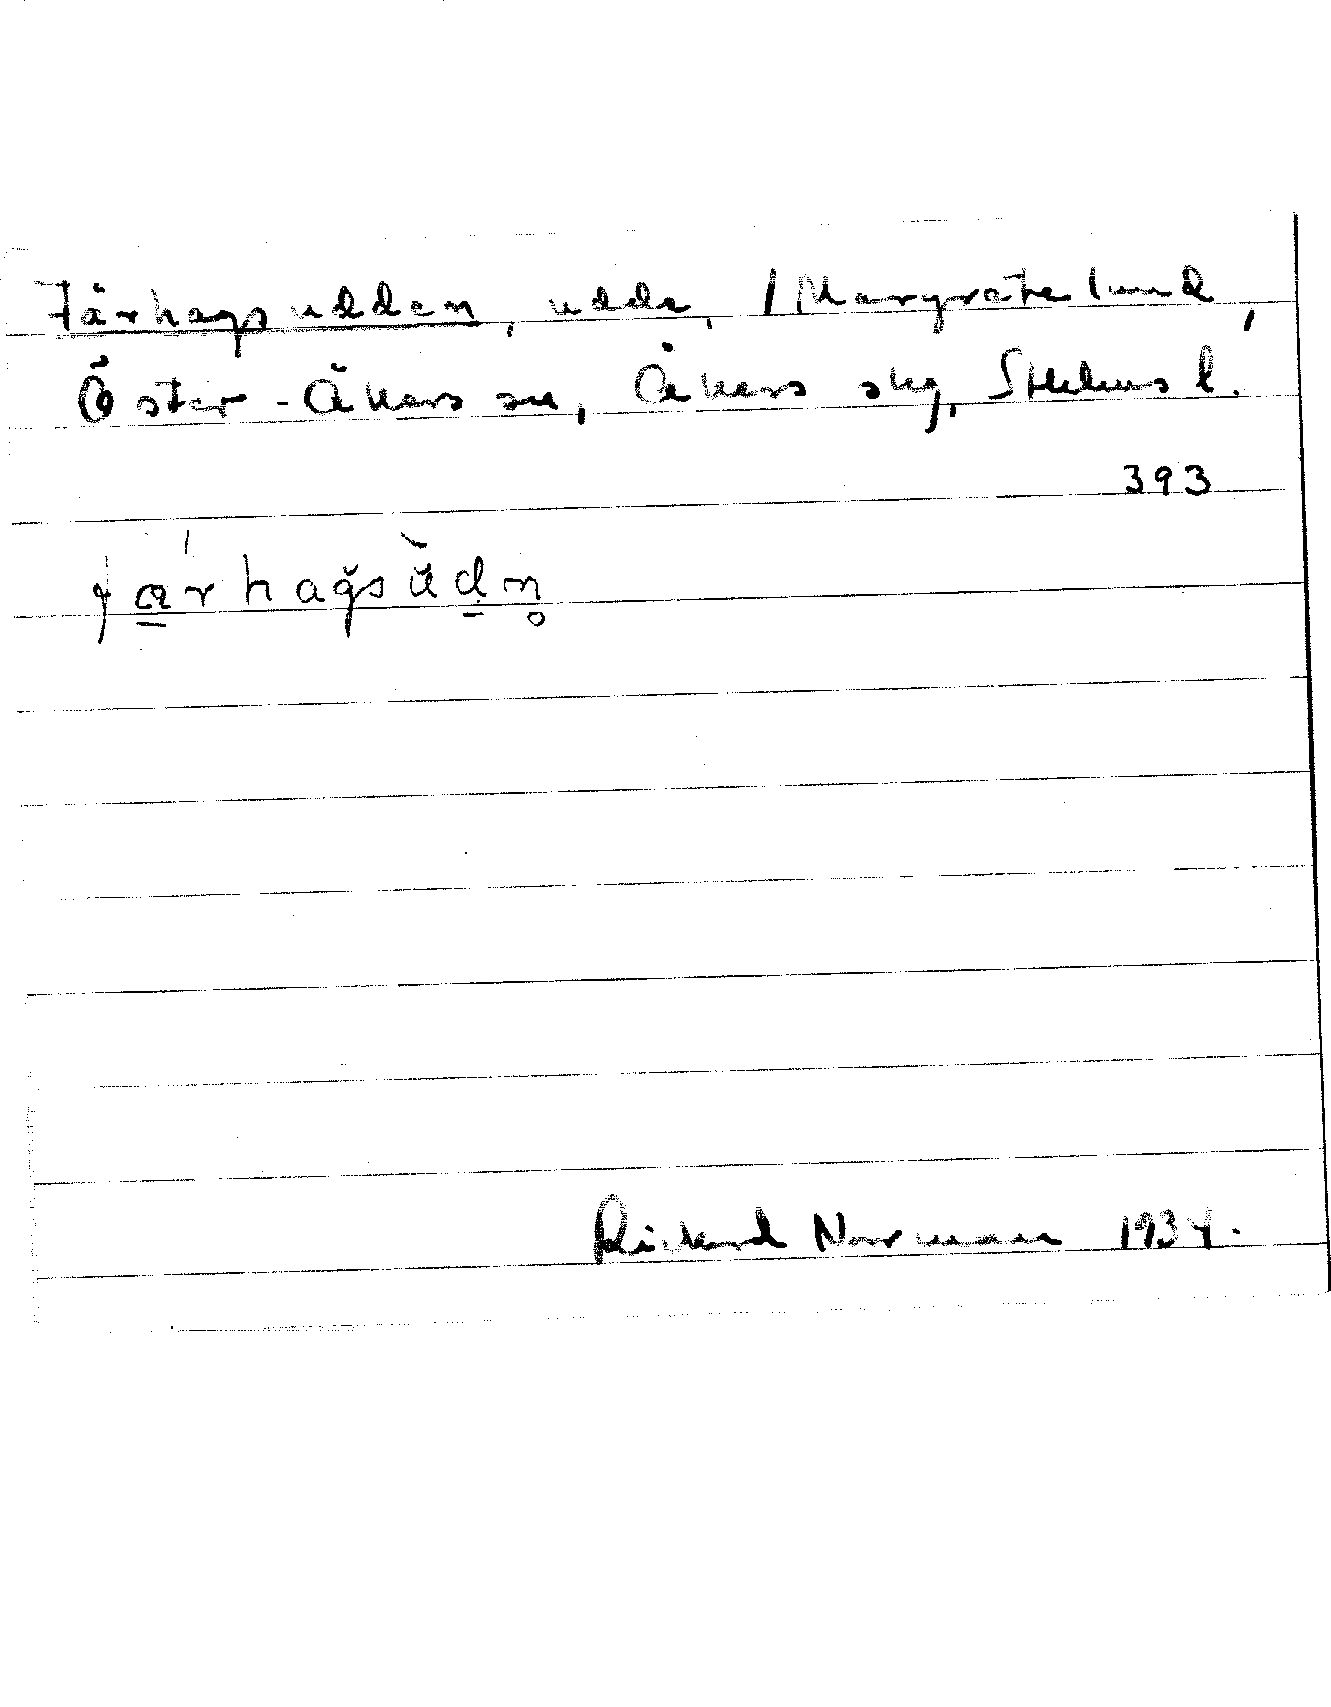 Fårhagsudden, udde, / Margretelund,
Öster-Åkers sn, Åkers skg, Sthlms l.
393
Rickard Norman 1934.